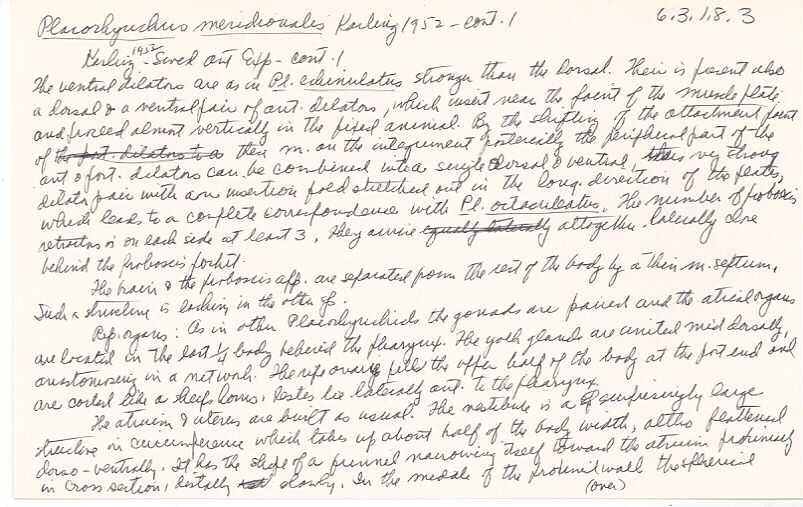 Placorhynchus meridionalis Karling 1952 - cont. 1
6.3.1.8.3
Karling 1952 - Swed ant Exp - cont. 1
The ventral dilators are as in Pl. echinulatus stronger than the dorsal. Their is present also
a dorsal & a ventral pair of ant. dilators, which insert near the joint of the muscle plate
and proceed almost vertically in the fixed animal. By the shifting of the attachment point
of the post. dilators to a then m. on the integument posterially the peripheral part of the
ant & post. dilators can be combined into a single dorsal & ventral, very strong
dilator pair with an insertion fold stretched out in the long. direction of the plates,
which leads to a complete correspondence with Pl. octaculeatus. The number of proboscis
retractors is on each side at least 3. They arrive equally laterally altogether laterally close
behind the proboscis pocket.
The brain & the proboscis app. are separated from the rest of the body by a thin m. septum.
Such a structure is lacking in the other sp.
Rep. organs: As in other Placorhynchids the gonads are paired and the atrial organs
are located in the last 1/4 body behind the pharynx. The yolk glands are united mid dorsally,
anastomosing in a network. The ripe ovaries fill the upper half of the body at the post end and
are coiled like a sheeps horns. Testes lie laterally ant. to the pharynx.
The atrium & uterus are built as usual. The vestibule is a surprisingly large
structure in circumference which takes up about half of the body width, altho flattened
dorso-ventrally. It has the shape of a funnel narrowing itself toward the atrium proximally
in cross section, distally slowly. In the middle of the proximal wall the spherical
(over)